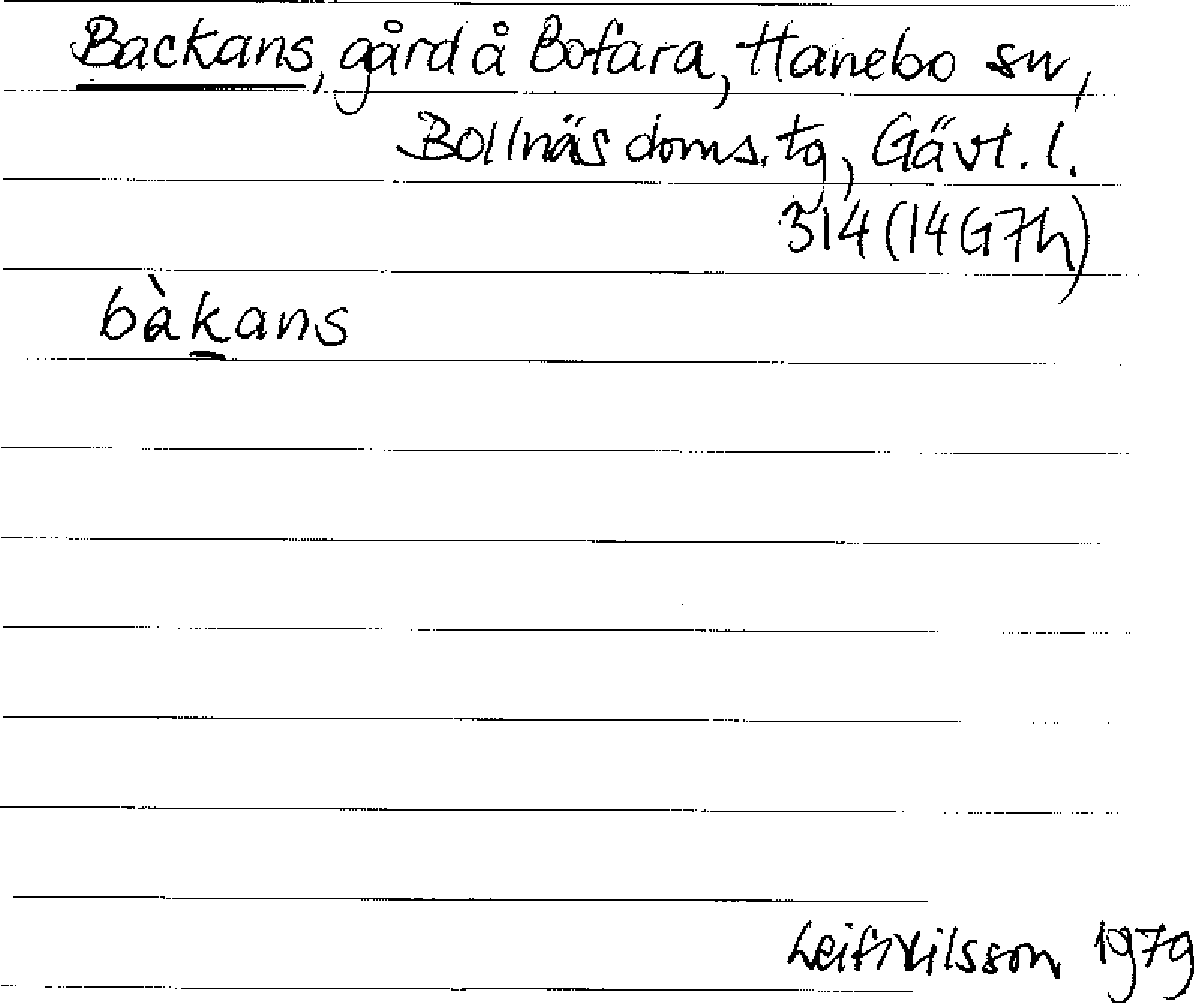 Backans, gård å Bofara, Hanebo sn,
Bollnäs doms. tg, Gävl. l.
314 (14G7h)
bàkans
Leif Nilsson 1979